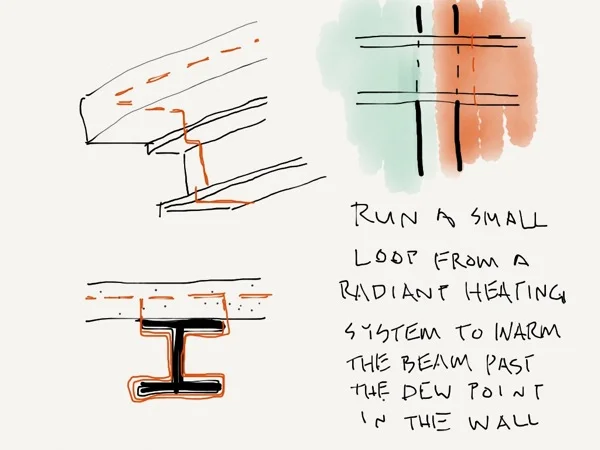 RUN A SMALL
LOOP FROM A
RADIANT HEATING
SYSTEM TO WARM
THE BEAM PAST
THE DEW POINT
IN THE WALL